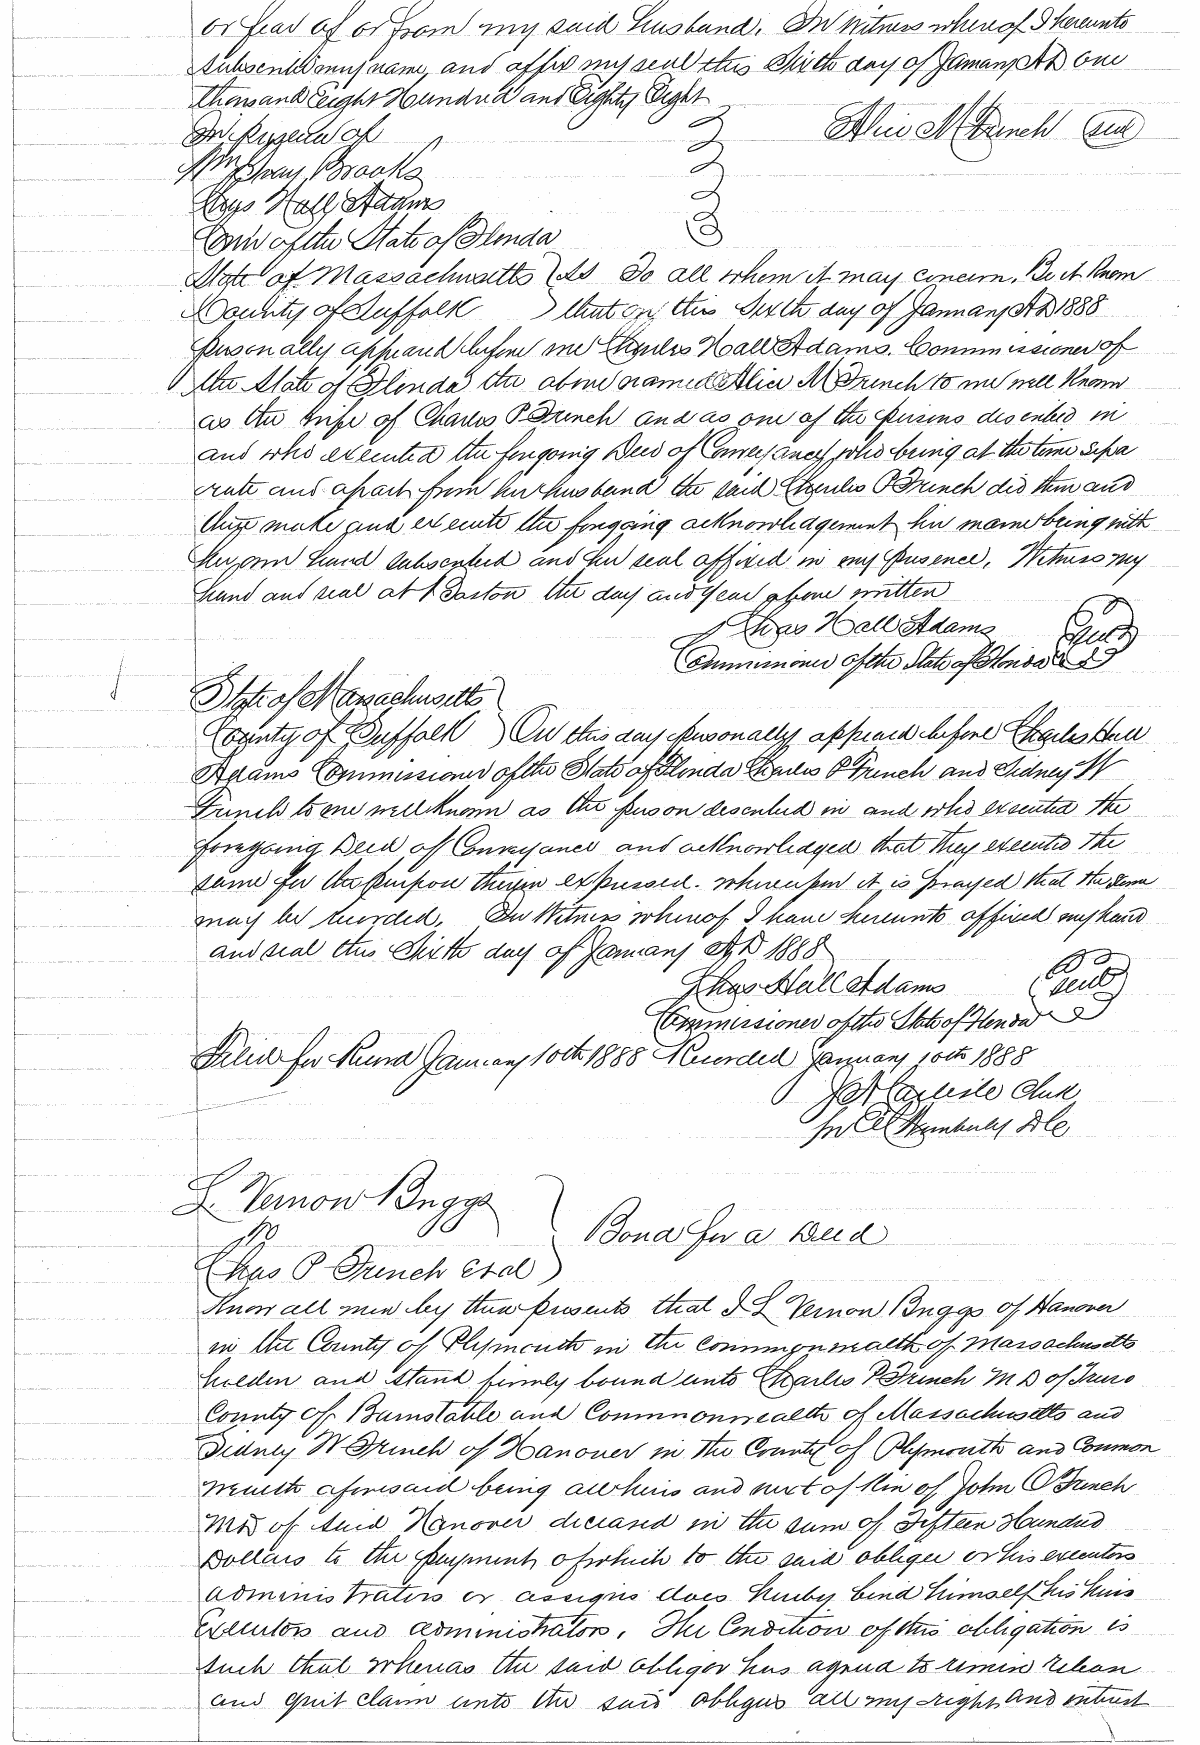 or fear of or from my said husband. In Witness whereof I hereunto
subscribe my name, and affix my seal this Sixth day of January AD one
thousand Eight Hundred and Eighty Eight
In presence of
Alice M French (seal)
Brooks
Chas Hall Adams
Com of the State of Florida
State of Massachusetts } ss To all whom it may concern. Be it Known
County of Suffolk } that on this Sixth day of January AD 1888
personally appeared before me Charles Hall Adams. Commissioner of
the State of Florida the above named Alice M French to me well Known
as the wife of Charles P French and as one of the persons described in
and who executed the foregoing Deed of Conveyance, who being at the time sepa
rate and apart from her husband the said Charles P French did then and
there make and execute the foregoing acknowledgement her name being with
her own hand subscribed and her seal affixed in my presence. Witness my
hand and seal at Boston the day and year above written
Chas Hall Adams (Seal)
Commissioner of the State of Florida
State of Massachusetts }
County of Suffolk } On this day personally appeared before Charles Hall
Adams Commissioner of the State of Florida Charles P French and Sidney W
French to me well Known as the person described in and who executed the
foregoing Deed of Conveyance and acknowledged that they executed the
same for the purpose therein expressed. whereupon it is prayed that the same
may be recorded. In Witness whereof I have hereunto affixed my hand
and seal this Sixth day of January AD 1888
Chas Hall Adams (Seal)
Commissioner of the State of Florida
Filed for Record January 10th 1888 Recorded January 10th 1888
Carlisle Clerk
DC
L. Vernon Briggs }
To } Bond for a Deed
Chas P French et al }
Know all men by these presents that I L Vernon Briggs of Hanover
in the County of Plymouth in the Commonwealth of Massachusetts
holden and stand firmly bound unto Charles P French M D of Truro
County of Barnstable and Commonwealth of Massachusetts and
Sidney W French of Hanover in the County of Plymouth and Common
wealth aforesaid being all heirs and next of Kin of John O French
MD of said Hanover deceased in the sum of Fifteen Hundred
Dollars to the payment of which to the said obligee or his executors
administrators or assigns does hereby bind himself his heirs
Executors and administrators. The Condition of this obligation is
such that whereas the said obligor has agreed to remise release
and quit claim unto the said obligees all my right and interest